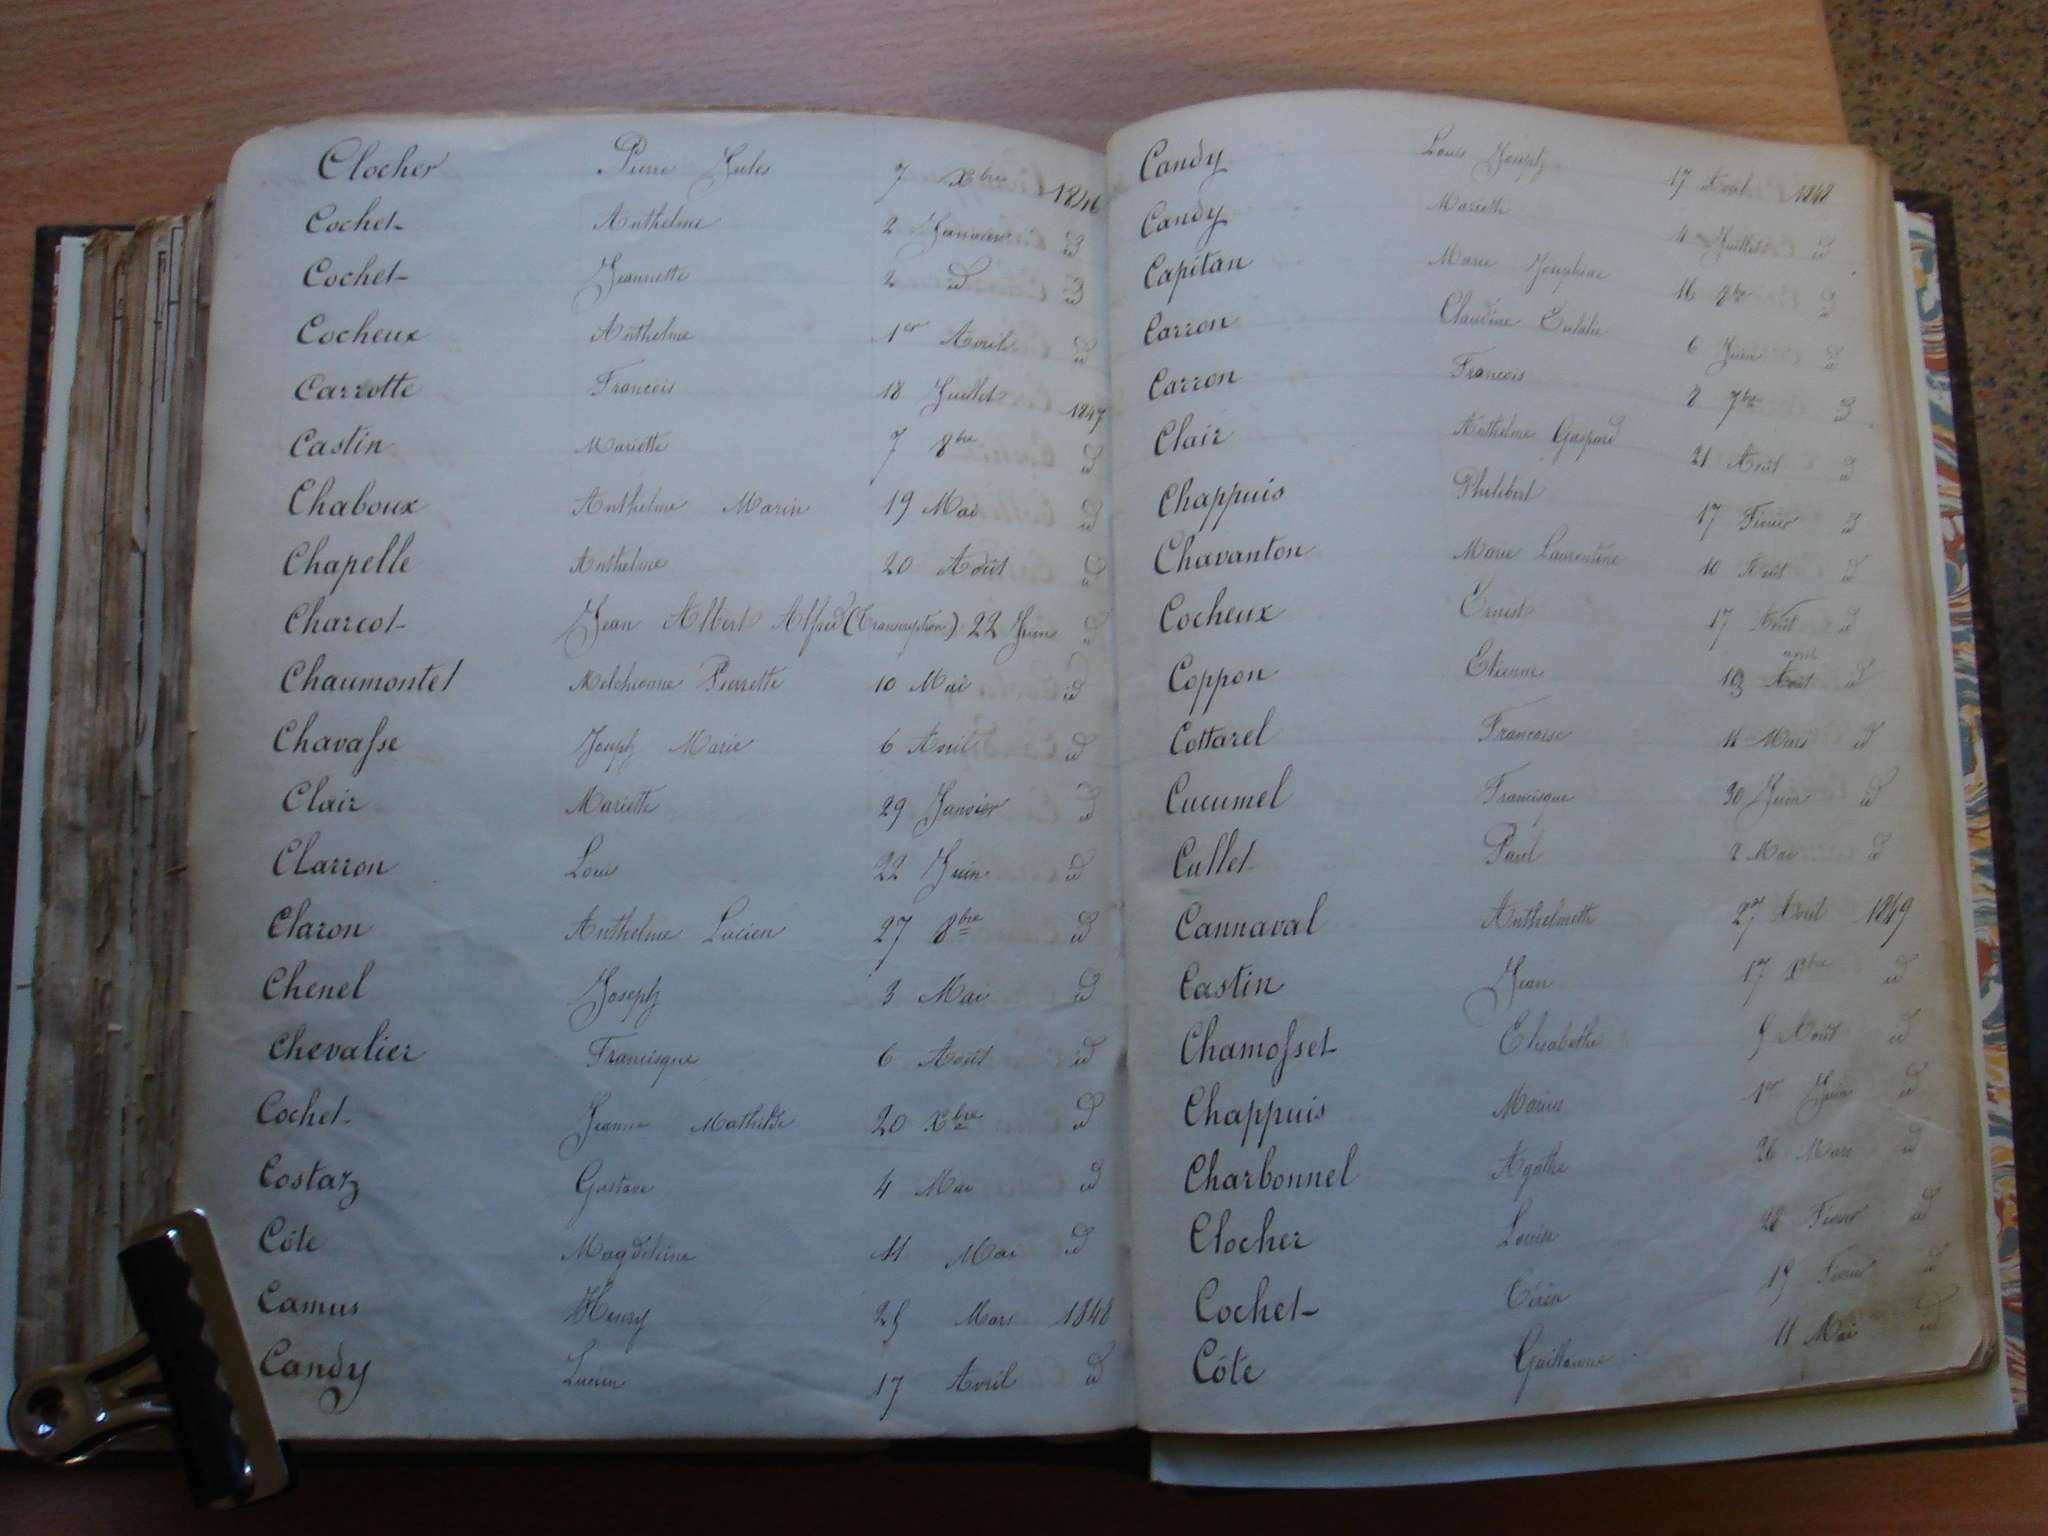 Clocher Pierre Jules 7 Xbre 1846
Cochet Anthelme 2 Janvier id
Cochet Jeannette 2 id id
Cocheux Anthelme 1er Avril id
Carrotte Francois 18 Juillet 1847
Castin Mariette 7 8bre id
Chaboux Anthelme Marin 19 Mai id
Chapelle Anthelme 20 Août id
Charcot Jean Albert Alfred (Transcription) 22 Juin id
Chaumontel Melchionne Pierrette 10 Mai id
Chavasse Joseph Marie 6 Avril id
Clair Mariette 29 Janvier id
Clarron Louis 22 Juin id
Claron Anthelme Lucien 27 8bre id
Chenel Joseph 3 Mai id
Chevalier Francisque 6 Août id
Cochet Jeanne Mathilde 20 Xbre id
Costaz Gustave 4 Mai id
Côte Magdeleine 11 Mai id
Camus Henry 25 Mars 1848
Candy Lucien 17 Avril id
Candy Louis Joseph 17 Avril 1848
Candy Mariette 4 Juillet id
Capitan Marie Josephine 16 8bre id
Carron Claudine Eulalie 6 Juin id
Carron Francois 8 7bre id
Clair Anthelme Gaspard 21 Août id
Chappuis Philibert 17 Février id
Chavanton Marie Laurentine 10 Août id
Cocheux Ernest 17 Août id
avril
Coppon Etienne 19 Août id
Cottarel Francoise 14 Mars id
Cucumel Francisque 30 Juin id
Cullet Paul 2 Mai id
Cannaval Anthelmette 27 Avril 1849
Castin Jean 17 Xbre id
Chamosset Elisabethe 9 Août id
Chappuis Marius 1er Juin id
Charbonnel Agathe 26 Mars id
Clocher Louise 28 Février id
Cochet 19 Février id
Côte Guillaume 11 Mai id